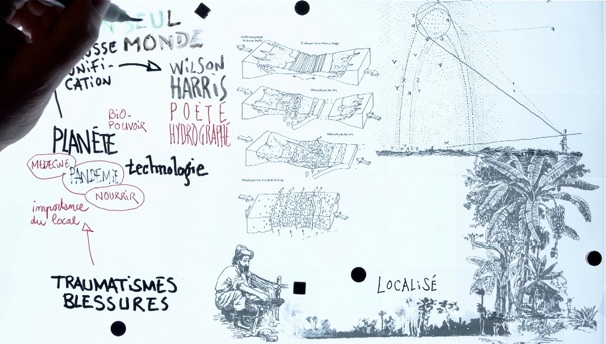 SEUL
MONDE
CATION
WILSON
HARRIS
POÈTE
HYDROGRAPHE
BIO-
POUVOIR
PLANÈTE
MEDECINE
PANDEMIE
technologie
NOURRIR
importance
du local
TRAUMATISMES
BLESSURES
LOCALISÉ